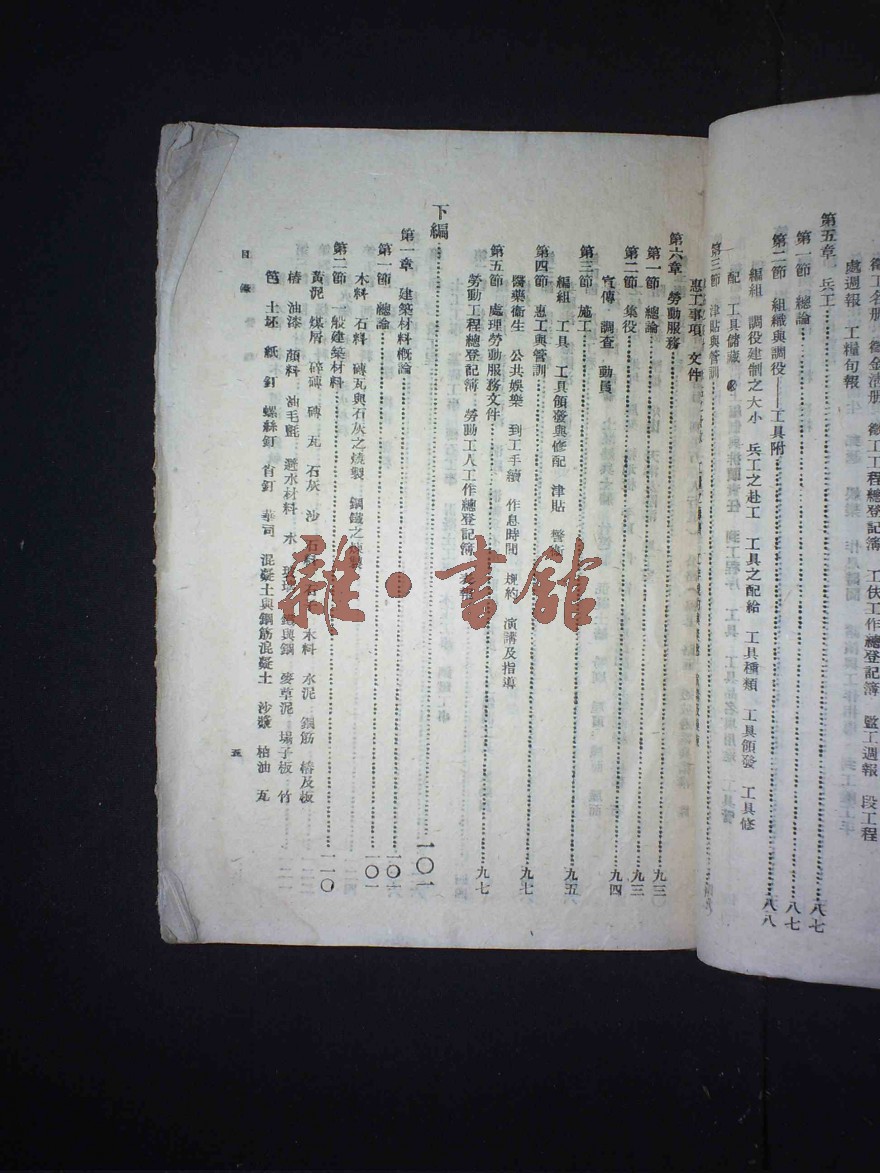 徵工名册　徵金清册　徵工工程總登記簿　工伕工作總登記簿　監工週報　段工程
處週報　工糧旬報
第五章　兵工……八七
第一節　總論……八七
第二節　組織與調役——工具附……八八
編組　調役建制之大小　兵工之赴工　工具之配給　工具種類　工具領發　工具修
配　工具儲藏
第三節　津貼與管訓
惠工事項　文件
第六章　勞動服務……九三
第一節　總論……九三
第二節　集役……九四
宣傳　調查　動員
第三節　施工……九五
編組　工具　工具領發與修配　津貼　警衛
第四節　惠工與管訓……九七
醫藥衛生　公共娛樂　到工手續　作息時間　規約　演講及指導
第五節　處理勞動服務文件……九七
勞動工程總登記簿　勞動工人工作總登記簿
下編……一〇一
第一章　建築材料概論……一〇六
第一節　總論……一〇一
木料　石料　磚瓦與石灰之燒製　鋼鐵之煉製
第二節　一般建築材料……一一〇
黃泥　煤屑　碎磚　磚　瓦　石灰　沙　石　木料　水泥　鋼筋　樁及板
樁　油漆　顏料　油毛氈　避水材料　水　玻璃　與鋼　麥草泥　場子板　竹
笆　土坯　紙　釘　螺絲釘　肖釘　華司　混凝土與鋼筋混凝土　沙漿　柏油　瓦
目錄
五
雜·書館